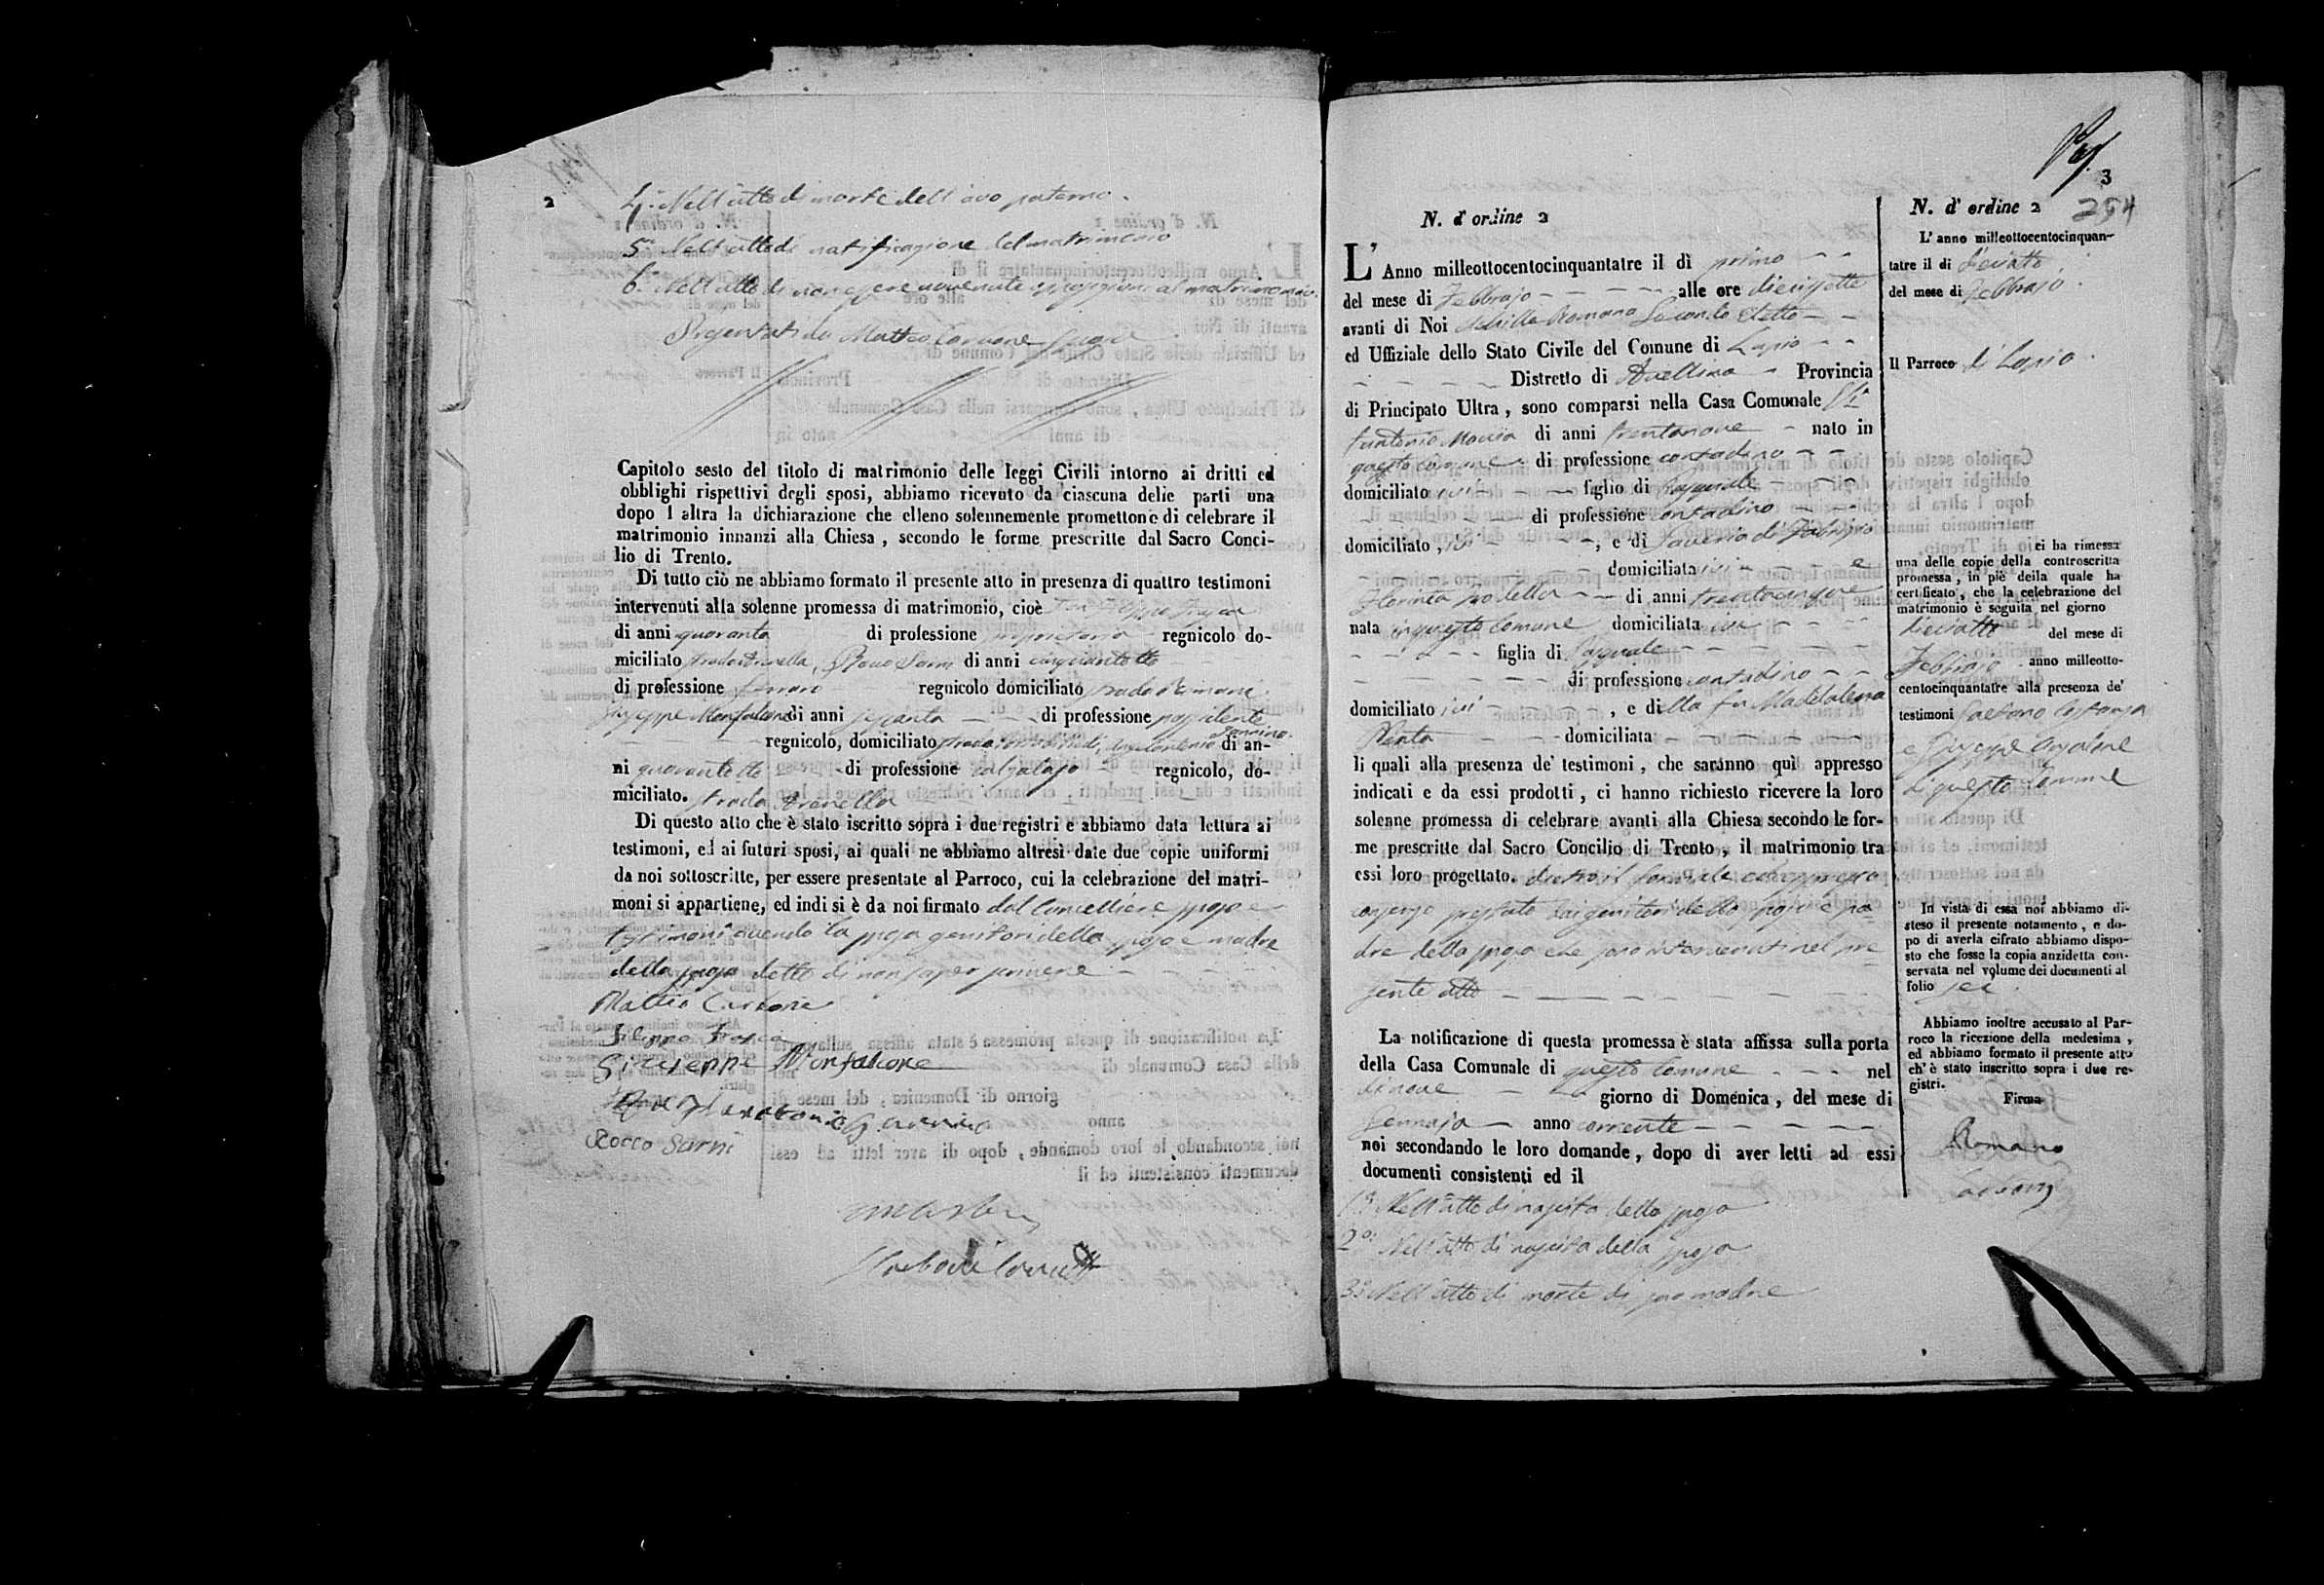 2
4° Nell'atto di morte dell'avo paterno.
5° Nell'atto di notificazione del matrimonio
6° Nell'atto di non essere avvenute opposizioni al matrimonio.
Presentati da Matteo Carbone sposo
Capitolo sesto del titolo di matrimonio delle leggi Civili intorno ai dritti ed
obblighi rispettivi degli sposi, abbiamo ricevuto da ciascuna delle parti una
dopo l altra la dichiarazione che elleno solennemente promettono di celebrare il
matrimonio innanzi alla Chiesa , secondo le forme prescritte dal Sacro Conci-
lio di Trento.
Di tutto ciò ne abbiamo formato il presente atto in presenza di quattro testimoni
intervenuti alla solenne promessa di matrimonio, cioè
di anni quaranta di professione proprietario regnicolo do-
miciliato strada Arenella, Rocco Sarni di anni cinquantotto
di professione ferraro regnicolo domiciliato strada
Giuseppe Monfalcone di anni sessanta di professione possidente
regnicolo, domiciliato strada di an-
ni quarantotto di professione calzolajo regnicolo, do-
miciliato. strada Arenella
Di questo atto che è stato iscritto sopra i due registri e abbiamo data lettura ai
testimoni, ed ai futuri sposi, ai quali ne abbiamo altresì date due copie uniformi
da noi sottoscritte, per essere presentate al Parroco, cui la celebrazione del matri-
moni si appartiene, ed indi si è da noi firmato dal Cancelliere sposo e
testimoni avendo la sposa genitori dello sposo e madre
della sposa detto di non saper scrivere
Matteo Carbone
Giuseppe Monfalcone
Rocco Sarni
3
254
N. d' ordine 2
L' Anno milleottocentocinquantatre il dì primo
del mese di Febbrajo alle ore diecisette
avanti di Noi Achille Romano Secondo Eletto
ed Uffiziale dello Stato Civile del Comune di Lapio
Distretto di Avellino Provincia
di Principato Ultra , sono comparsi nella Casa Comunale
di anni trentanove nato in
questo Comune di professione contadino
domiciliato ivi figlio di Pasquale
di professione contadino
domiciliato , ivi , e di Saveria di Fabrizio
domiciliata ivi e
di anni trentacinque
nata in questo Comune domiciliata ivi
figlia di Pasquale
di professione contadino
domiciliato ivi , e di lla fu Maddalena
domiciliata
li quali alla presenza de' testimoni , che saranno quì appresso
indicati e da essi prodotti , ci hanno richiesto ricevere la loro
solenne promessa di celebrare avanti alla Chiesa secondo le for-
me prescritte dal Sacro Concilio di Trento , il matrimonio tra
essi loro progettato. dietro il formale ed espresso
consenso prestato dai genitori dello sposo e pa-
dre della sposa che sono intervenuti nel pre-
sente atto
La notificazione di questa promessa è stata affissa sulla porta
della Casa Comunale di questo Comune nel
dì nove giorno di Domenica , del mese di
Gennajo anno corrente
noi secondando le loro domande , dopo di aver letti ad essi
documenti consistenti ed il
1° Nell'atto di nascita dello sposo
2° Nell'atto di nascita della sposa
3° Nell'atto di morte di sua madre
N. d' ordine 2
L' anno milleottocentocinquan-
tatre il di dieciotto
del mese di Febbrajo
Il Parroco di Lapio
ci ha rimessa
una delle copie della controscritta
promessa , in piè della quale ha
certificato , che la celebrazione del
matrimonio è seguita nel giorno
dieciotto del mese di
Febbrajo anno milleotto-
centocinquantatre alla presenza de'
testimoni Gaetano
e Giuseppe
di questo Comune
In vista di essa noi abbiamo di-
steso il presente notamento , e do-
po di averla cifrato abbiamo dispo-
sto che fosse la copia anzidetta con-
servata nel volume dei documenti al
folio sei
Abbiamo inoltre accusato al Par-
roco la ricezione della medesima ,
ed abbiamo formato il presente atto
ch' è stato inscritto sopra i due re-
gistri.
Firma
Romano